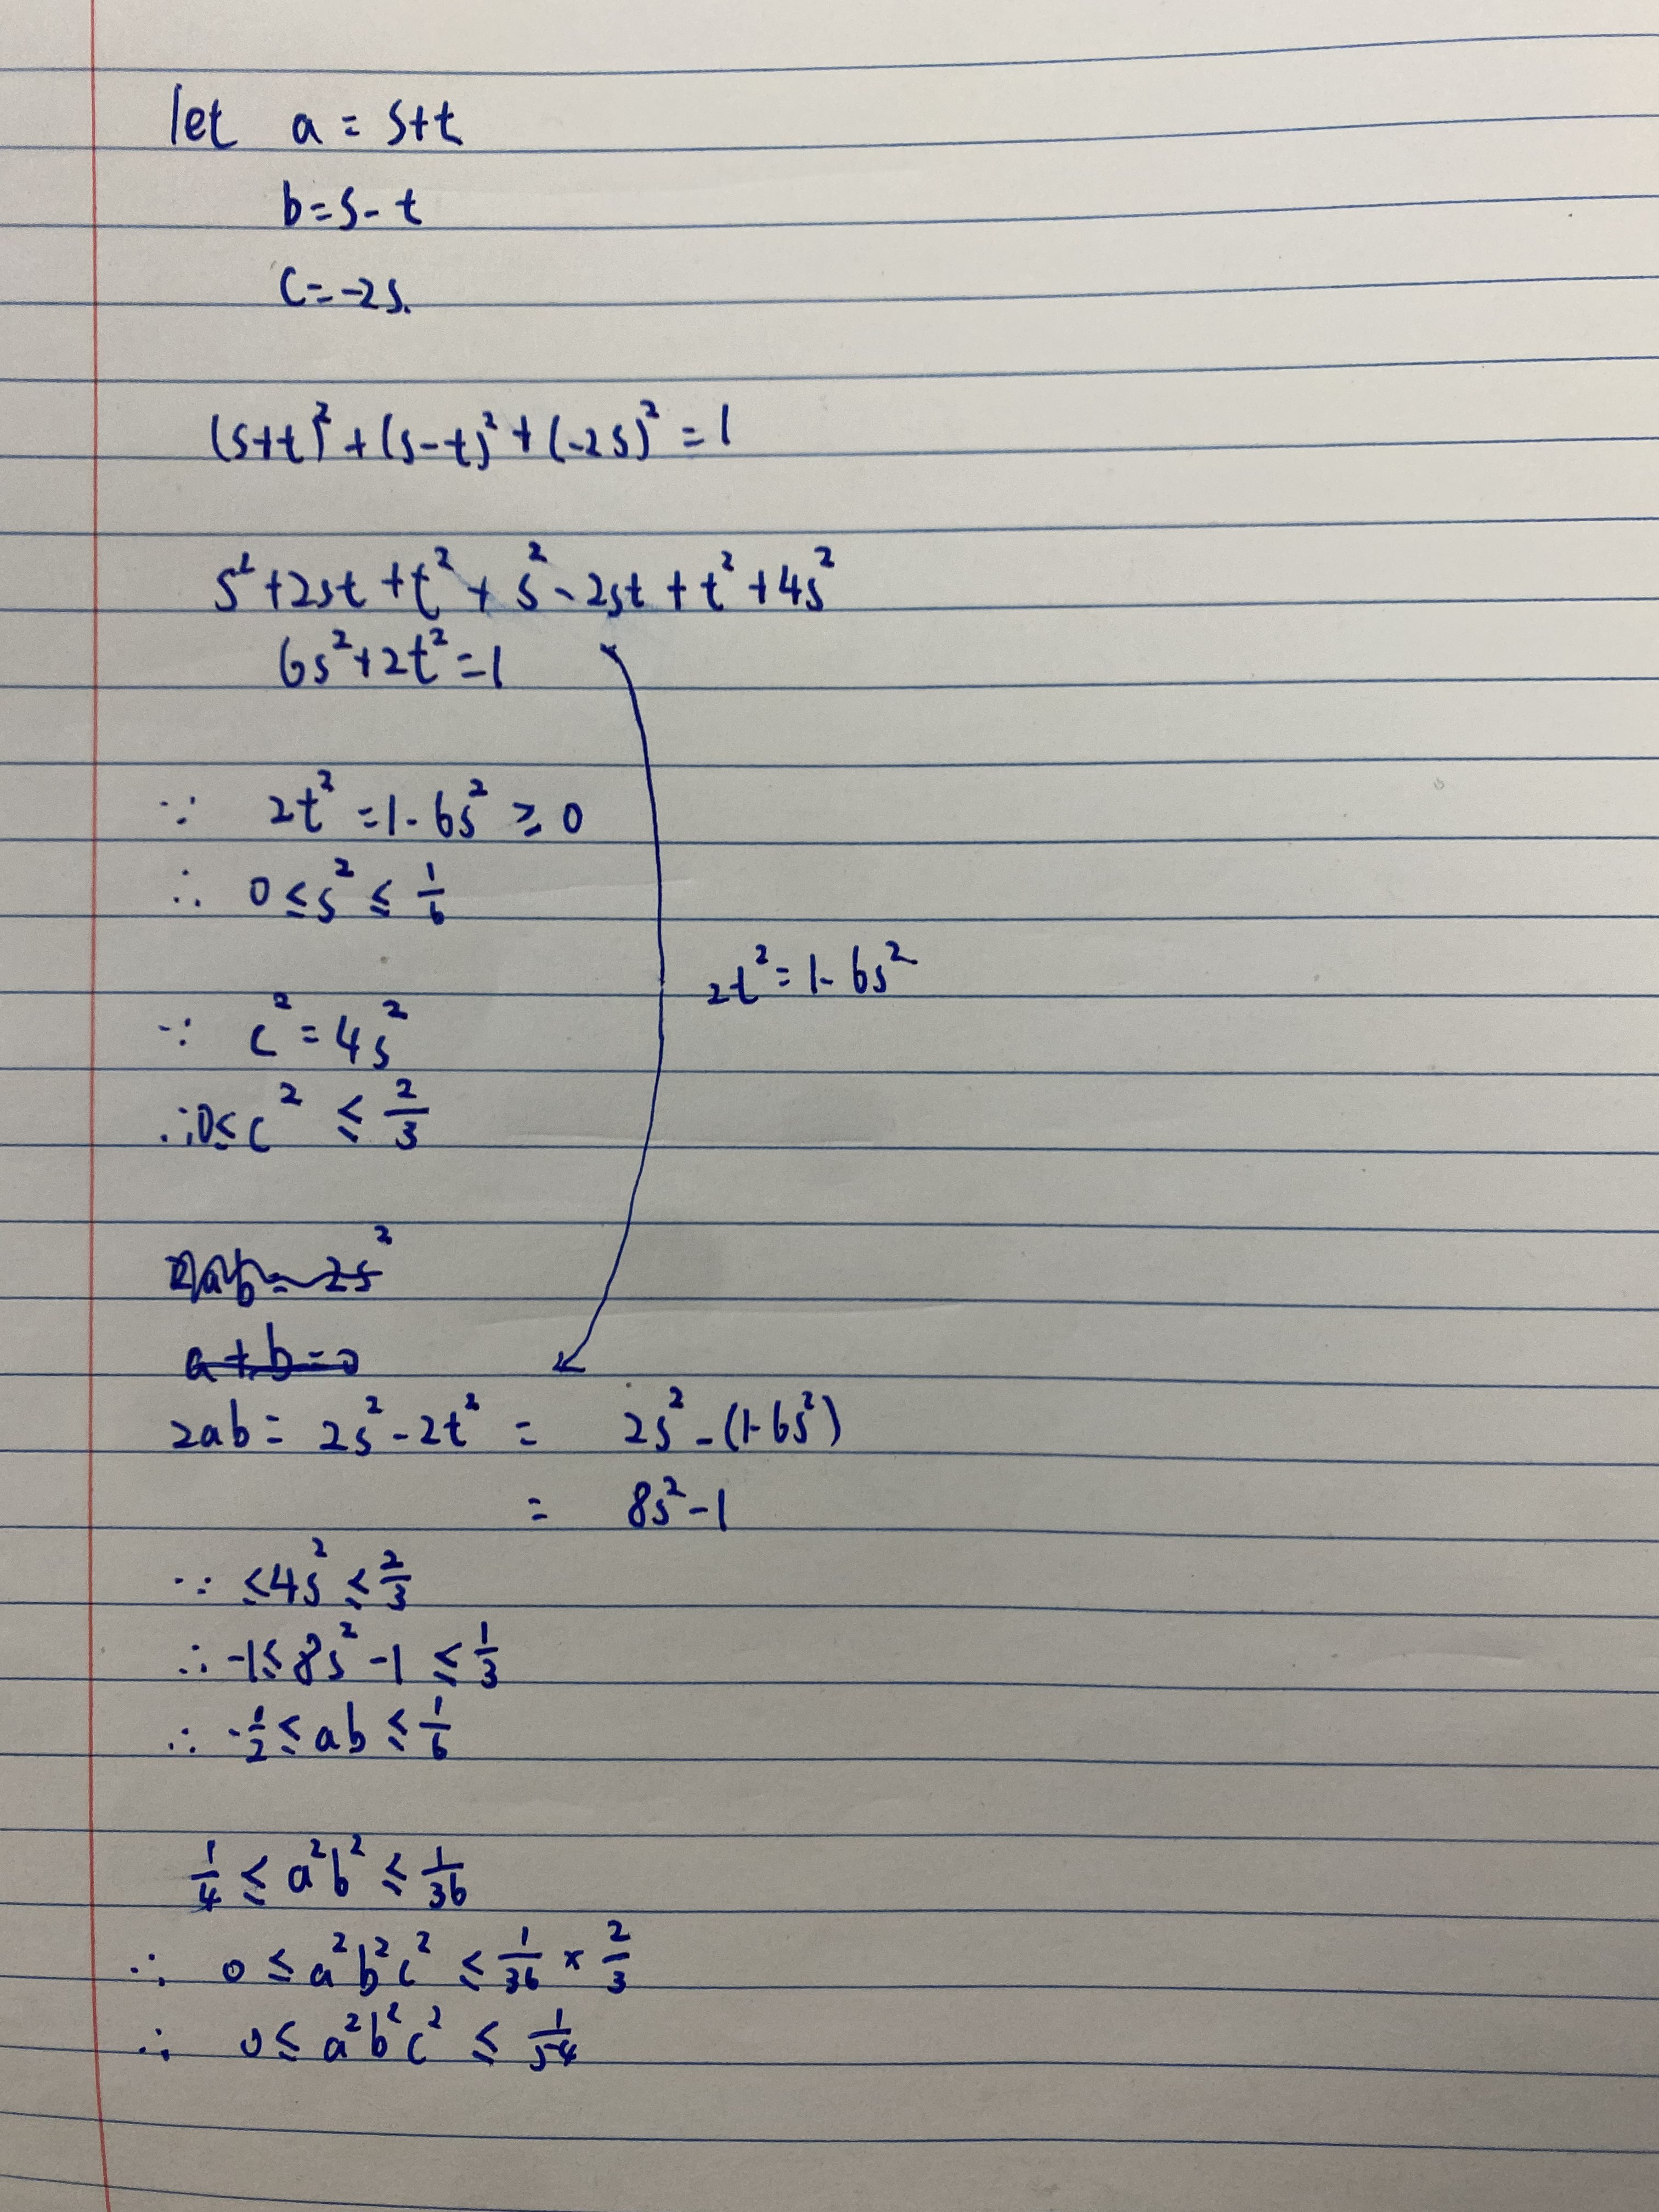 let a = s+t
b=s-t
c=-2s.
(s+t)²+(s-t)²+(-2s)²=1
s²+2st+t²+s²-2st+t²+4s²
6s²+2t²=1
∵ 2t²=1-6s² ≥ 0
∴ 0≤s² ≤ 1/6
2t²=1-6s²
∵ c²=4s²
∴0≤c² ≤ 2/3
a+b=0
2ab= 2s²-2t² = 2s²-(1-6s²)
= 8s²-1
∵ ≤4s² ≤ 2/3
∴ -1≤ 8s²-1 ≤ 1/3
∴ -1/2 ≤ ab ≤ 1/6
1/4 ≤ a²b² ≤ 1/36
∴ 0 ≤ a²b²c² ≤ 1/36 × 2/3
∴ 0≤ a²b²c² ≤ 1/54